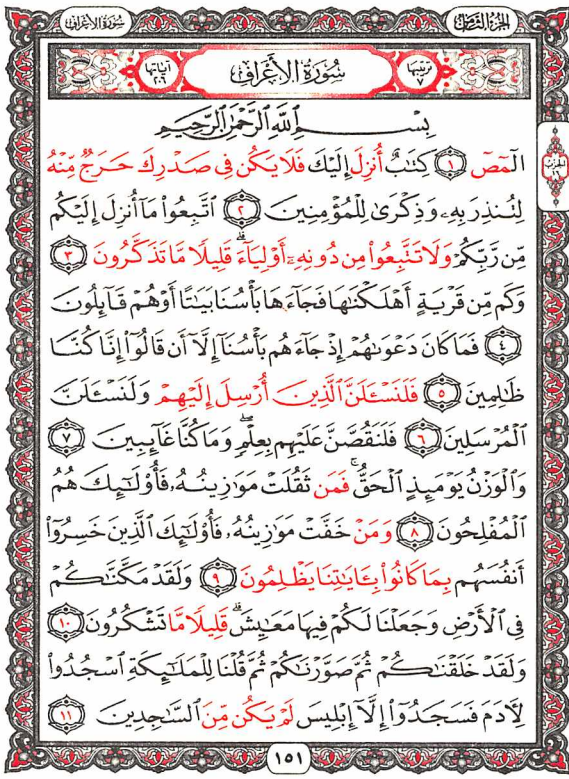 سُورَةُ الأَعْرَافِ
الجُزءُ الثَّامِنُ
ترتيبها ٧
سُورَةُ الأَعْرَافِ
آياتها ٢٠٦
بِسْمِ اللَّهِ الرَّحْمَٰنِ الرَّحِيمِ
الٓمٓصٓ ١ كِتَٰبٌ أُنزِلَ إِلَيْكَ فَلَا يَكُن فِى صَدْرِكَ حَرَجٌ مِّنْهُ
لِتُنذِرَ بِهِۦ وَذِكْرَىٰ لِلْمُؤْمِنِينَ ٢ ٱتَّبِعُوا۟ مَآ أُنزِلَ إِلَيْكُم
مِّن رَّبِّكُمْ وَلَا تَتَّبِعُوا۟ مِن دُونِهِۦٓ أَوْلِيَآءَ ۗ قَلِيلًا مَّا تَذَكَّرُونَ ٣
وَكَم مِّن قَرْيَةٍ أَهْلَكْنَٰهَا فَجَآءَهَا بَأْسُنَا بَيَٰتًا أَوْ هُمْ قَآئِلُونَ
٤ فَمَا كَانَ دَعْوَىٰهُمْ إِذْ جَآءَهُم بَأْسُنَآ إِلَّآ أَن قَالُوٓا۟ إِنَّا كُنَّا
ظَٰلِمِينَ ٥ فَلَنَسْـَٔلَنَّ ٱلَّذِينَ أُرْسِلَ إِلَيْهِمْ وَلَنَسْـَٔلَنَّ
ٱلْمُرْسَلِينَ ٦ فَلَنَقُصَّنَّ عَلَيْهِم بِعِلْمٍ ۖ وَمَا كُنَّا غَآئِبِينَ ٧
وَٱلْوَزْنُ يَوْمَئِذٍ ٱلْحَقُّ ۚ فَمَن ثَقُلَتْ مَوَٰزِينُهُۥ فَأُو۟لَٰٓئِكَ هُمُ
ٱلْمُفْلِحُونَ ٨ وَمَنْ خَفَّتْ مَوَٰزِينُهُۥ فَأُو۟لَٰٓئِكَ ٱلَّذِينَ خَسِرُوٓا۟
أَنفُسَهُم بِمَا كَانُوا۟ بِـَٔايَٰتِنَا يَظْلِمُونَ ٩ وَلَقَدْ مَكَّنَّٰكُمْ
فِى ٱلْأَرْضِ وَجَعَلْنَا لَكُمْ فِيهَا مَعَٰيِشَ ۗ قَلِيلًا مَّا تَشْكُرُونَ ١٠
وَلَقَدْ خَلَقْنَٰكُمْ ثُمَّ صَوَّرْنَٰكُمْ ثُمَّ قُلْنَا لِلْمَلَٰٓئِكَةِ ٱسْجُدُوا۟
لِـَٔادَمَ فَسَجَدُوٓا۟ إِلَّآ إِبْلِيسَ لَمْ يَكُن مِّنَ ٱلسَّٰجِدِينَ ١١
١٥١